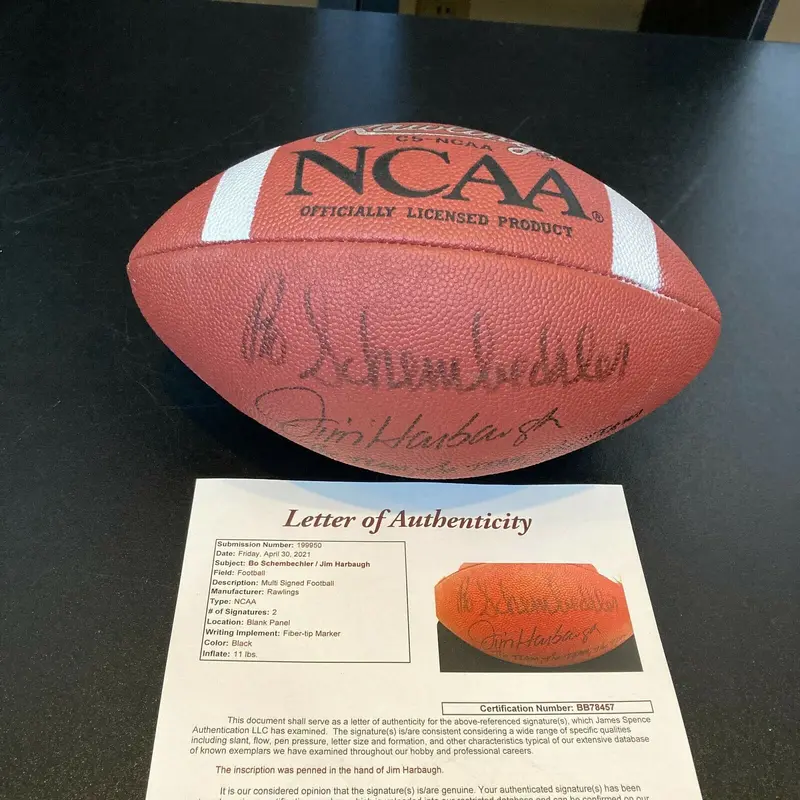 Rawlings
C5-NCAA
NCAA®
OFFICIALLY LICENSED PRODUCT
Bo Schembechler
Jim Harbaugh
Letter of Authenticity
Submission Number: 199950
Date: Friday, April 30, 2021
Subject: Bo Schembechler / Jim Harbaugh
Field: Football
Description: Multi Signed Football
Manufacturer: Rawlings
Type: NCAA
# of Signatures: 2
Location: Blank Panel
Writing Implement: Fiber-tip Marker
Color: Black
Inflate: 11 lbs.
Bo Schembechler
Jim Harbaugh
Certification Number: BB78457
This document shall serve as a letter of authenticity for the above-referenced signature(s), which James Spence
Authentication LLC has examined. The signature(s) is/are consistent considering a wide range of specific qualities
including slant, flow, pen pressure, letter size and formation, and other characteristics typical of our extensive database
of known exemplars we have examined throughout our hobby and professional careers.
The inscription was penned in the hand of Jim Harbaugh.
It is our considered opinion that the signature(s) is/are genuine. Your authenticated signature(s) has been